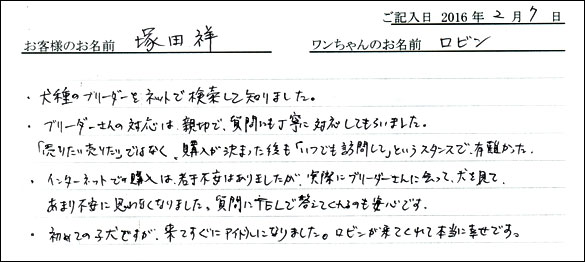 ご記入日 2016 年 2 月 7 日
お客様のお名前 塚田祥 ワンちゃんのお名前 ロビン
・犬種のブリーダーをネットで検索して知りました。
・ブリーダーさんの対応は、親切で、質問にも丁寧に対応してもらいました。
「売りたい売りたい」ではなく、購入が決まった後も「いつでも訪問して」というスタンスで、有難かった。
・インターネットでの購入は、若干不安はありましたが、実際にブリーダーさんに会って、犬を見て、
あまり不安に思わなくなりました。質問にTELで答えてくれるのも安心です。
・初めての子犬ですが、来てすぐにアイドルになりました。ロビンが来てくれて本当に幸せです。